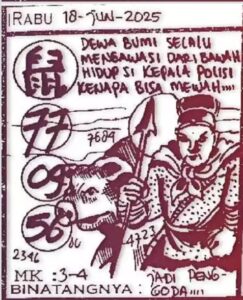 RABU 18-JUN-2025
鼠
DEWA BUMI SELALU
MENGAWASI DARI BAWAH
HIDUP SI KEPALA POLISI
KENAPA BISA MEWAH....
77
7689
09
56
86
4723
2316
MK : 3-4
BINATANGNYA :
JADI PENG-
GODA....